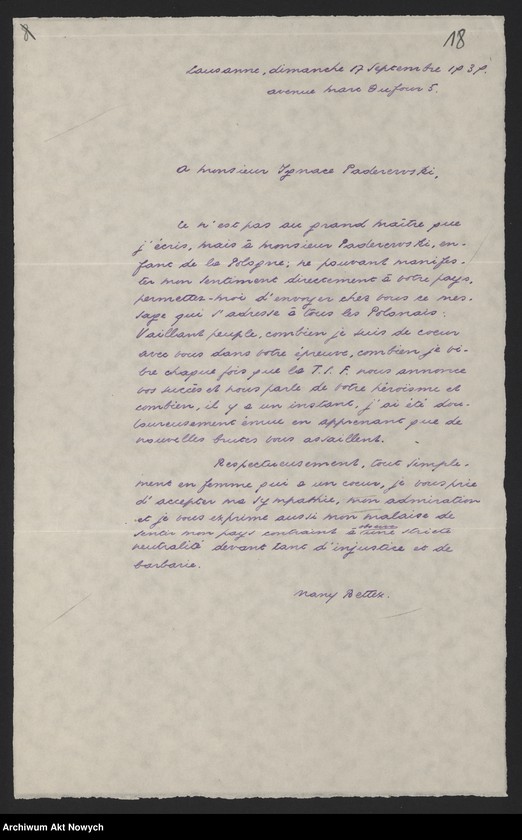 18
Lausanne, dimanche 17 Septembre 1939.
avenue Marc Dufour 5.
A Monsieur Ignace Paderewski,
Ce n'est pas au grand Maître que
j'écris, mais à Monsieur Paderewski, en-
fant de la Pologne; ne pouvant manifes-
ter mon sentiment directement à votre pays,
permettez-moi d'envoyer chez vous ce mes-
sage qui s'adresse à tous les Polonais:
Vaillant peuple, combien je suis de coeur
avec vous dans votre épreuve, combien je vi-
bre chaque fois que la T.S.F. nous annonce
vos succès et nous parle de votre héroïsme et
combien, il y a un instant, j'ai été dou-
loureusement émue en apprenant que de
nouvelles brutes vous assaillent.
Respectueusement, tout simple-
ment en femme qui a un coeur, je vous prie
d'accepter ma sympathie, mon admiration
et je vous exprime aussi mon malaise de
sentir mon pays contraint à une stricte
neutralité devant tant d'injustice et de
barbarie.
Nany Bettex.
Archiwum Akt Nowych